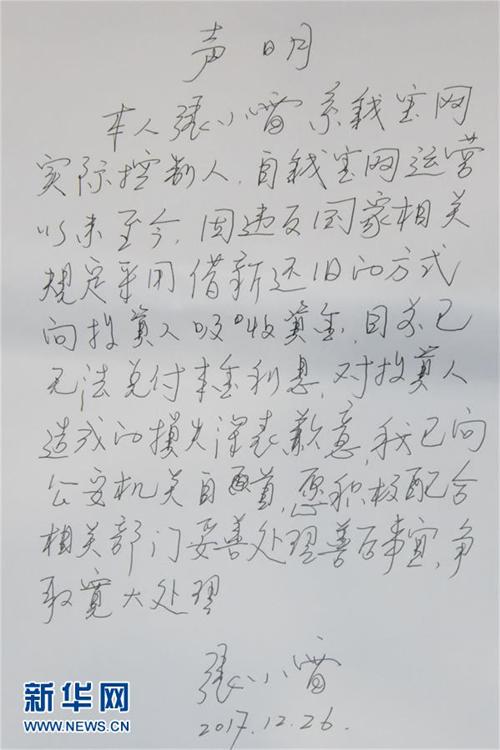 声明
本人张小雷系钱宝网
实际控制人，自钱宝网运营
以来至今，因违反国家相关
规定采用借新还旧的方式
向投资人吸收资金，目前已
无法兑付本金利息，对投资人
造成的损失深表歉意，我已向
公安机关自首，愿积极配合
相关部门妥善处理善后事宜，争
取宽大处理
张小雷
2017.12.26.
新华网
WWW.NEWS.CN